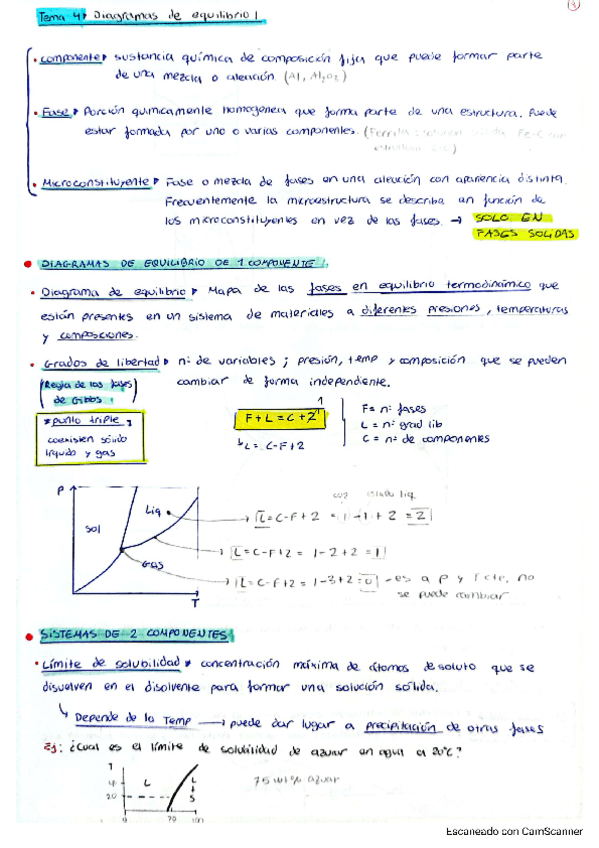 Tema 4: Diagramas de equilibrio
• Componente: sustancia química de composición fija que puede formar parte
de una mezcla o aleación. (Al, Al2O3)
• Fase: Porción quimicamente homogenea que forma parte de una estructura. Puede
estar formada por uno o varias componentes.
• Microconstituyente: Fase o mezcla de fases en una aleación con apariencia distinta.
Frecuentemente la microestructura se describe en función de
los microconstituyentes en vez de las fases. → SOLO EN
FASES SOLIDAS
• DIAGRAMAS DE EQUILIBRIO DE 1 COMPONENTE:
• Diagrama de equilibrio: Mapa de las fases en equilibrio termodinámico que
están presentes en un sistema de materiales a diferentes presiones, temperaturas
y composiciones.
• Grados de libertad: nº de variables; presión, temp y composición que se pueden
(Regla de las fases cambiar de forma independiente.
de Gibbs)
* punto triple
coexisten sólido
líquido y gas
1
F + L = C + 2
L = C-F+2
F = nº fases
L = nº grad lib
C = nº de componentes
P
Sol
Liq
Gas
T
L = C-F+2 = 1-1+2 = 2
L = C-F+2 = 1-2+2 = 1
L = C-F+2 = 1-3+2 = 0 - es a P y T cte, no
se puede cambiar
• SISTEMAS DE 2 COMPONENTES
• Límite de solubilidad: concentración máxima de átomos de soluto que se
disuelven en el disolvente para formar una solución sólida.
Depende de la Temp → puede dar lugar a precipitación de otras fases
Ej: ¿Cual es el límite de solubilidad de azucar en agua a 20ºC?
T
L
L
+
S
20
0 70 100
75 wt% azucar
Escaneado con CamScanner